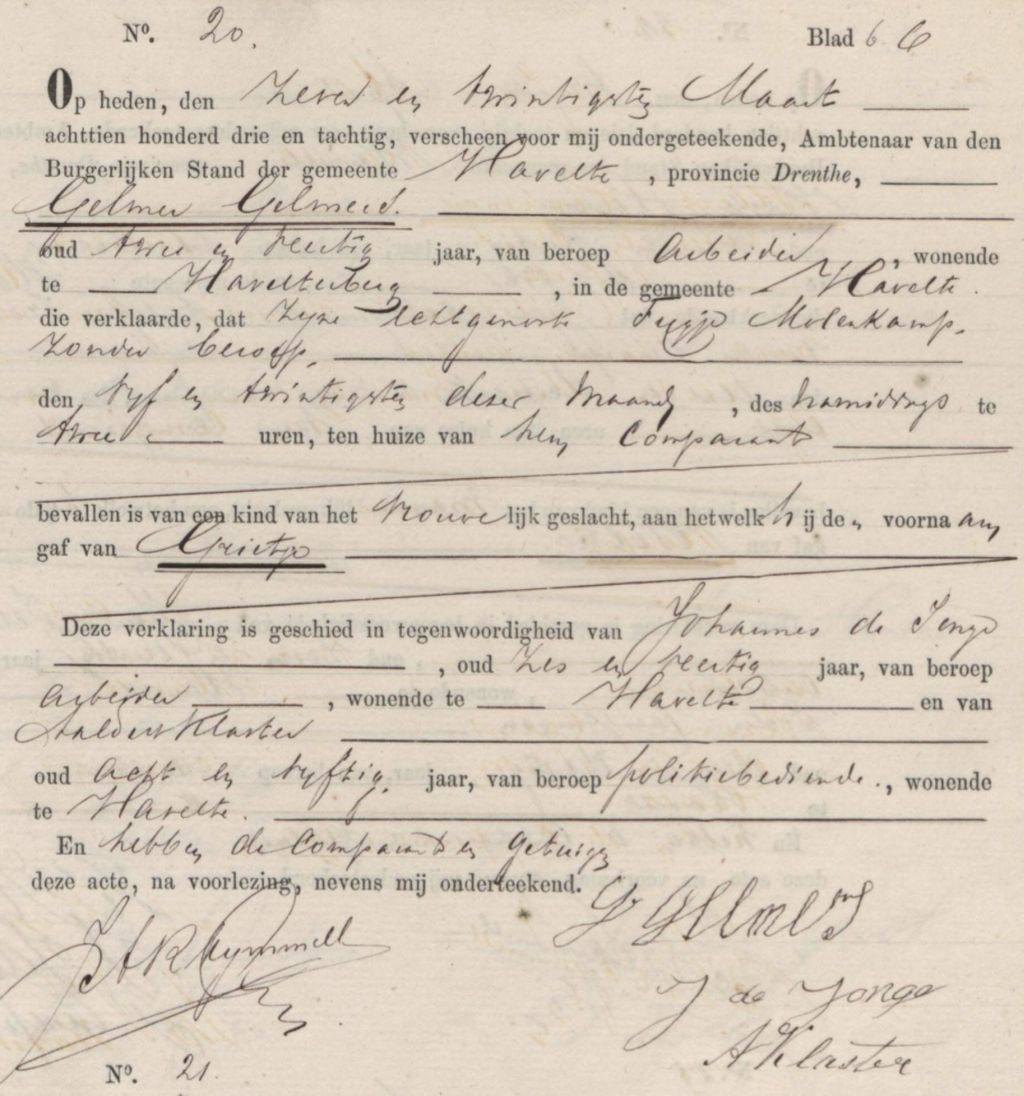 No. 20. Blad 6 6
Op heden, den Zeven en twintigsten Maart
achttien honderd drie en tachtig, verscheen voor mij ondergeteekende, Ambtenaar van den
Burgerlijken Stand der gemeente Havelte, provincie Drenthe,
Gelmer Gelmers.
oud twee en veertig jaar, van beroep Arbeider, wonende
te Havelterberg, in de gemeente Havelte.
die verklaarde, dat Zijne Echtgenoote Molenkamp.
Zonder beroep.
den vijf en twintigsten dezer Maand, des namiddags te
twee uren, ten huize van hem Comparant
bevallen is van een kind van het vrouwelijk geslacht, aan hetwelk hij den voornaam
gaf van Grietje
Deze verklaring is geschied in tegenwoordigheid van Johannes de Jonge
, oud zes en veertig jaar, van beroep
Arbeider, wonende te Havelte en van
Aaldert Klaster
oud acht en vyftig jaar, van beroep politiebediende., wonende
te Havelte.
En hebben de Comparant en getuigen
deze acte, na voorlezing, nevens mij onderteekend.
G Gelmers
J de Jonge
A Klaster
No. 21.